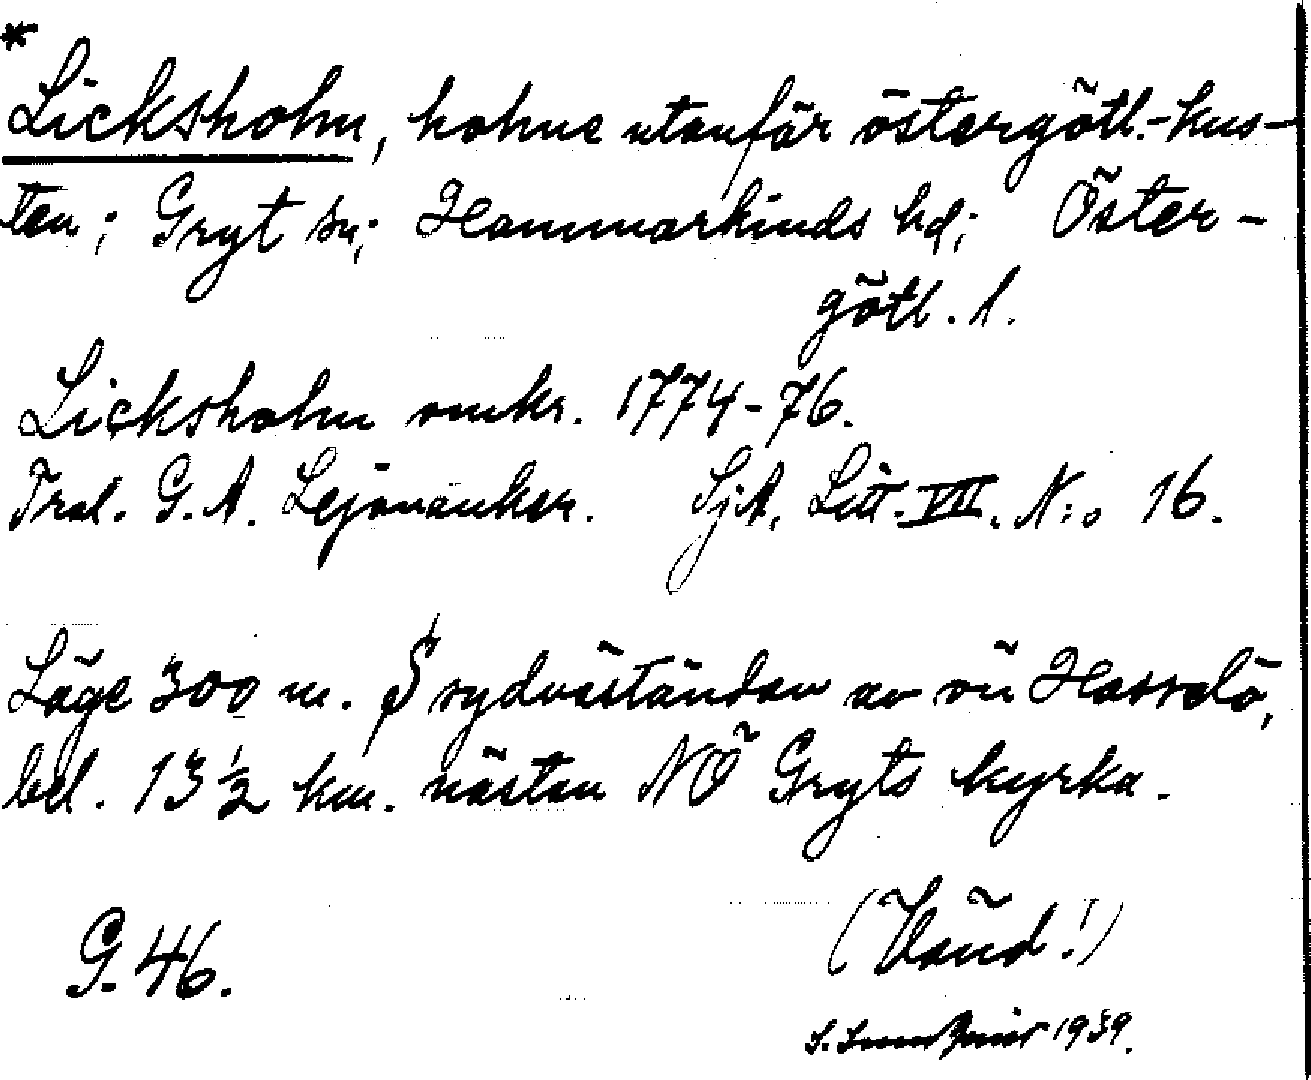 *
Licksholm, holme utanför östergötl.-kus-
ten; Gryt sn; Hammarkinds hd; Öster-
götl. l.
Licksholm omkr. 1774-76.
Trol. G. A. Lejonancker. SjA, Litt. VII. N:o 16.
Läge 300 m. S sydväständan av ön Hasselö,
bel. 13 1/2 km. nästan NÖ Gryts kyrka.
G. 46.
(Vänd!)
S. 1939.